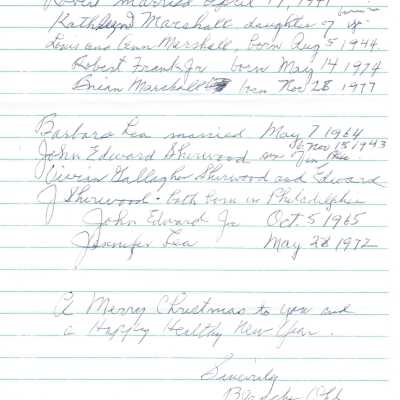 married April 17, 1941
Kathleen Marshall, daughter of
Louis and Ann Marshall, born Aug 5 1944.
Robert Frank Jr born May 14 1974
Brian Marshall born Nov 28 1977
Barbara Lea married May 7 1964
b. Nov 15 1943
John Edward Sherwood son
Vivian Gallagher Sherwood and Edward
J Sherwood - both born in Philadelphia
John Edward Jr Oct. 5 1965
Jennifer Lea May 28 1972
A Merry Christmas to you and
a Happy Healthy New Year.
Sincerely